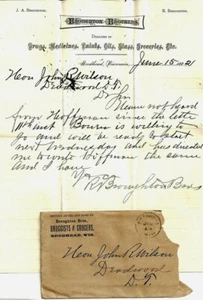 J. A. Broughton.
R. Broughton.
Broughton Brothers,
Dealers in
Drugs, Medicines, Paints, Oils, Glass, Groceries, Etc.
Brodhead, Wisconsin, June 15 1882
Hon John R Wilson
Deadwood D. T.
Dr Sir
Have not heard
from Hoffman since the letter
Bowen is willing to
go and will be ready to start
next Wednesday and has
me to write Hoffman the same
and I have
Broughton Bros
Broughton Bros.
DRUGGISTS & GROCERS,
BRODHEAD, WIS.
Hon John R Wilson
Deadwood
D. T.